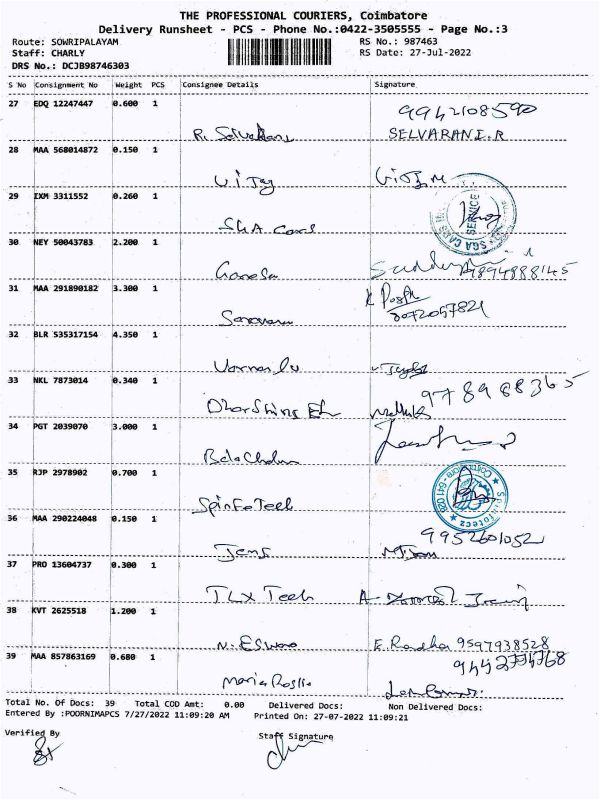 THE PROFESSIONAL COURIERS, Coimbatore
Delivery Runsheet - PCS - Phone No.:0422-3505555 - Page No.:3
Route: SOWRIPALAYAM RS No.: 987463
Staff: CHARLY RS Date: 27-Jul-2022
DRS No.: DCJB98746303
S No Consignment No Weight PCS Consignee Details Signature
27 EDQ 12247447 0.600 1
9942108590
R. SELVARANI.R
28 MAA 568014872 0.150 1
Vijay
29 IXM 3311552 0.260 1
SGA CARS SERVICE
SGA Cars
30 NEY 50043783 2.200 1
Ganesh
31 MAA 291890182 3.300 1
K
8072057821
32 BLR 535317154 4.350 1
33 NKL 7873014 0.340 1
34 PGT 2039070 3.000 1
35 RJP 2978902 0.700 1
Spinfotecz Coimbatore - 641 028
SpinFoTech
36 MAA 290224048 0.150 1
9952601052
37 PRO 13604737 0.300 1
TLX Tech A
38 KVT 2625518 1.200 1
N. Eswa E. Radha 9597938528
39 MAA 857863169 0.680 1
Maria
Total No. Of Docs: 39 Total COD Amt: 0.00 Delivered Docs: Non Delivered Docs:
Entered By :POORNIMAPCS 7/27/2022 11:09:20 AM Printed On: 27-07-2022 11:09:21
Verified By Staff Signature